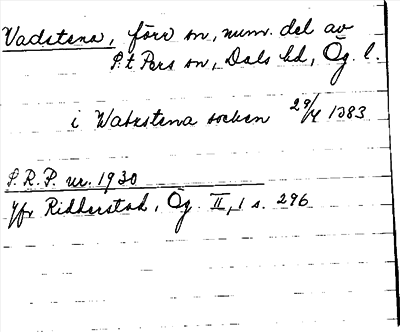 Vadstena, förr sn, num. del av
S:t Pers sn, Dals hd, Ög. l.
i Watzstena socken 29/4 1383
S.R.P. nr. 1930
Jfr Ridderstad, Ög. II,1 s. 296